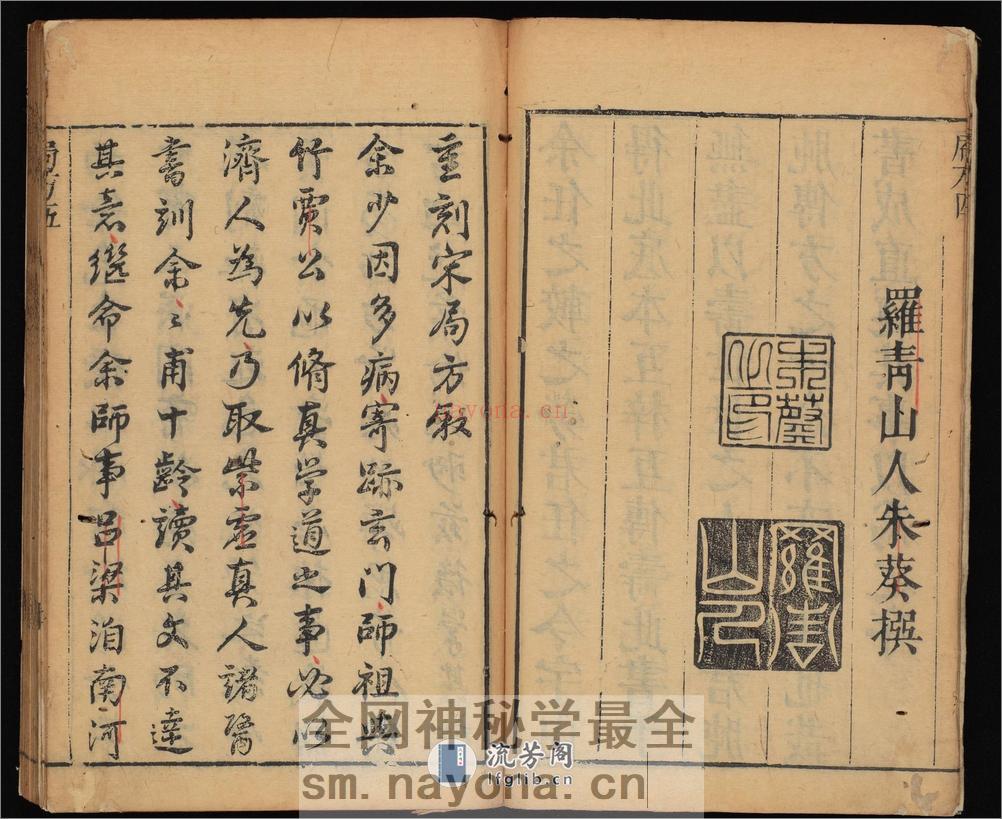 羅青山人朱葵撰
朱葵之印
羅青山人
重刻宋局方敘
余少因多病寄跡玄門師祖與
竹賈公以脩真学道之事必以
濟人為先乃取紫虛真人諸醫
書訓余〻甫十齡讀其文不達
其意繼命余師事吕梁泊南河
局方五
nayona.cn
全网神秘学最全
流芳阁
lfglib.cn
sm.nayona.cn